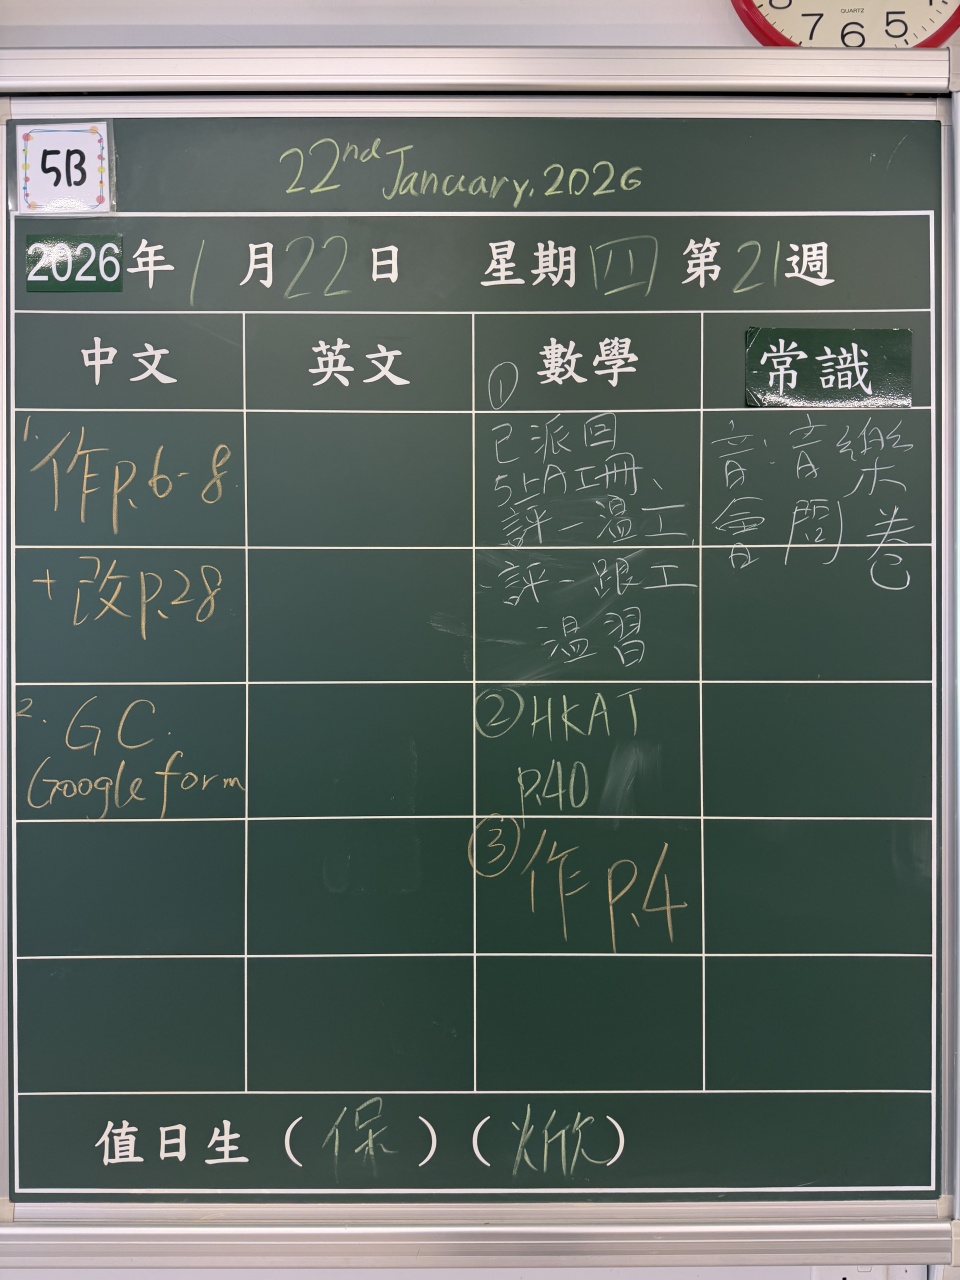 7 6 5
QUARTZ
5B
22nd January, 2026
2026年1月22日 星期四 第21週
中文 英文 數學 常識
1. 作p.6-8
+改p.28
2. GC.
Google form
①
已派回
5上A工冊、
評一溫工、
評一跟工
溫習
② HKAT
p.40
③ 作 p.4
音:音樂
會問卷
值日生(保)(焮)